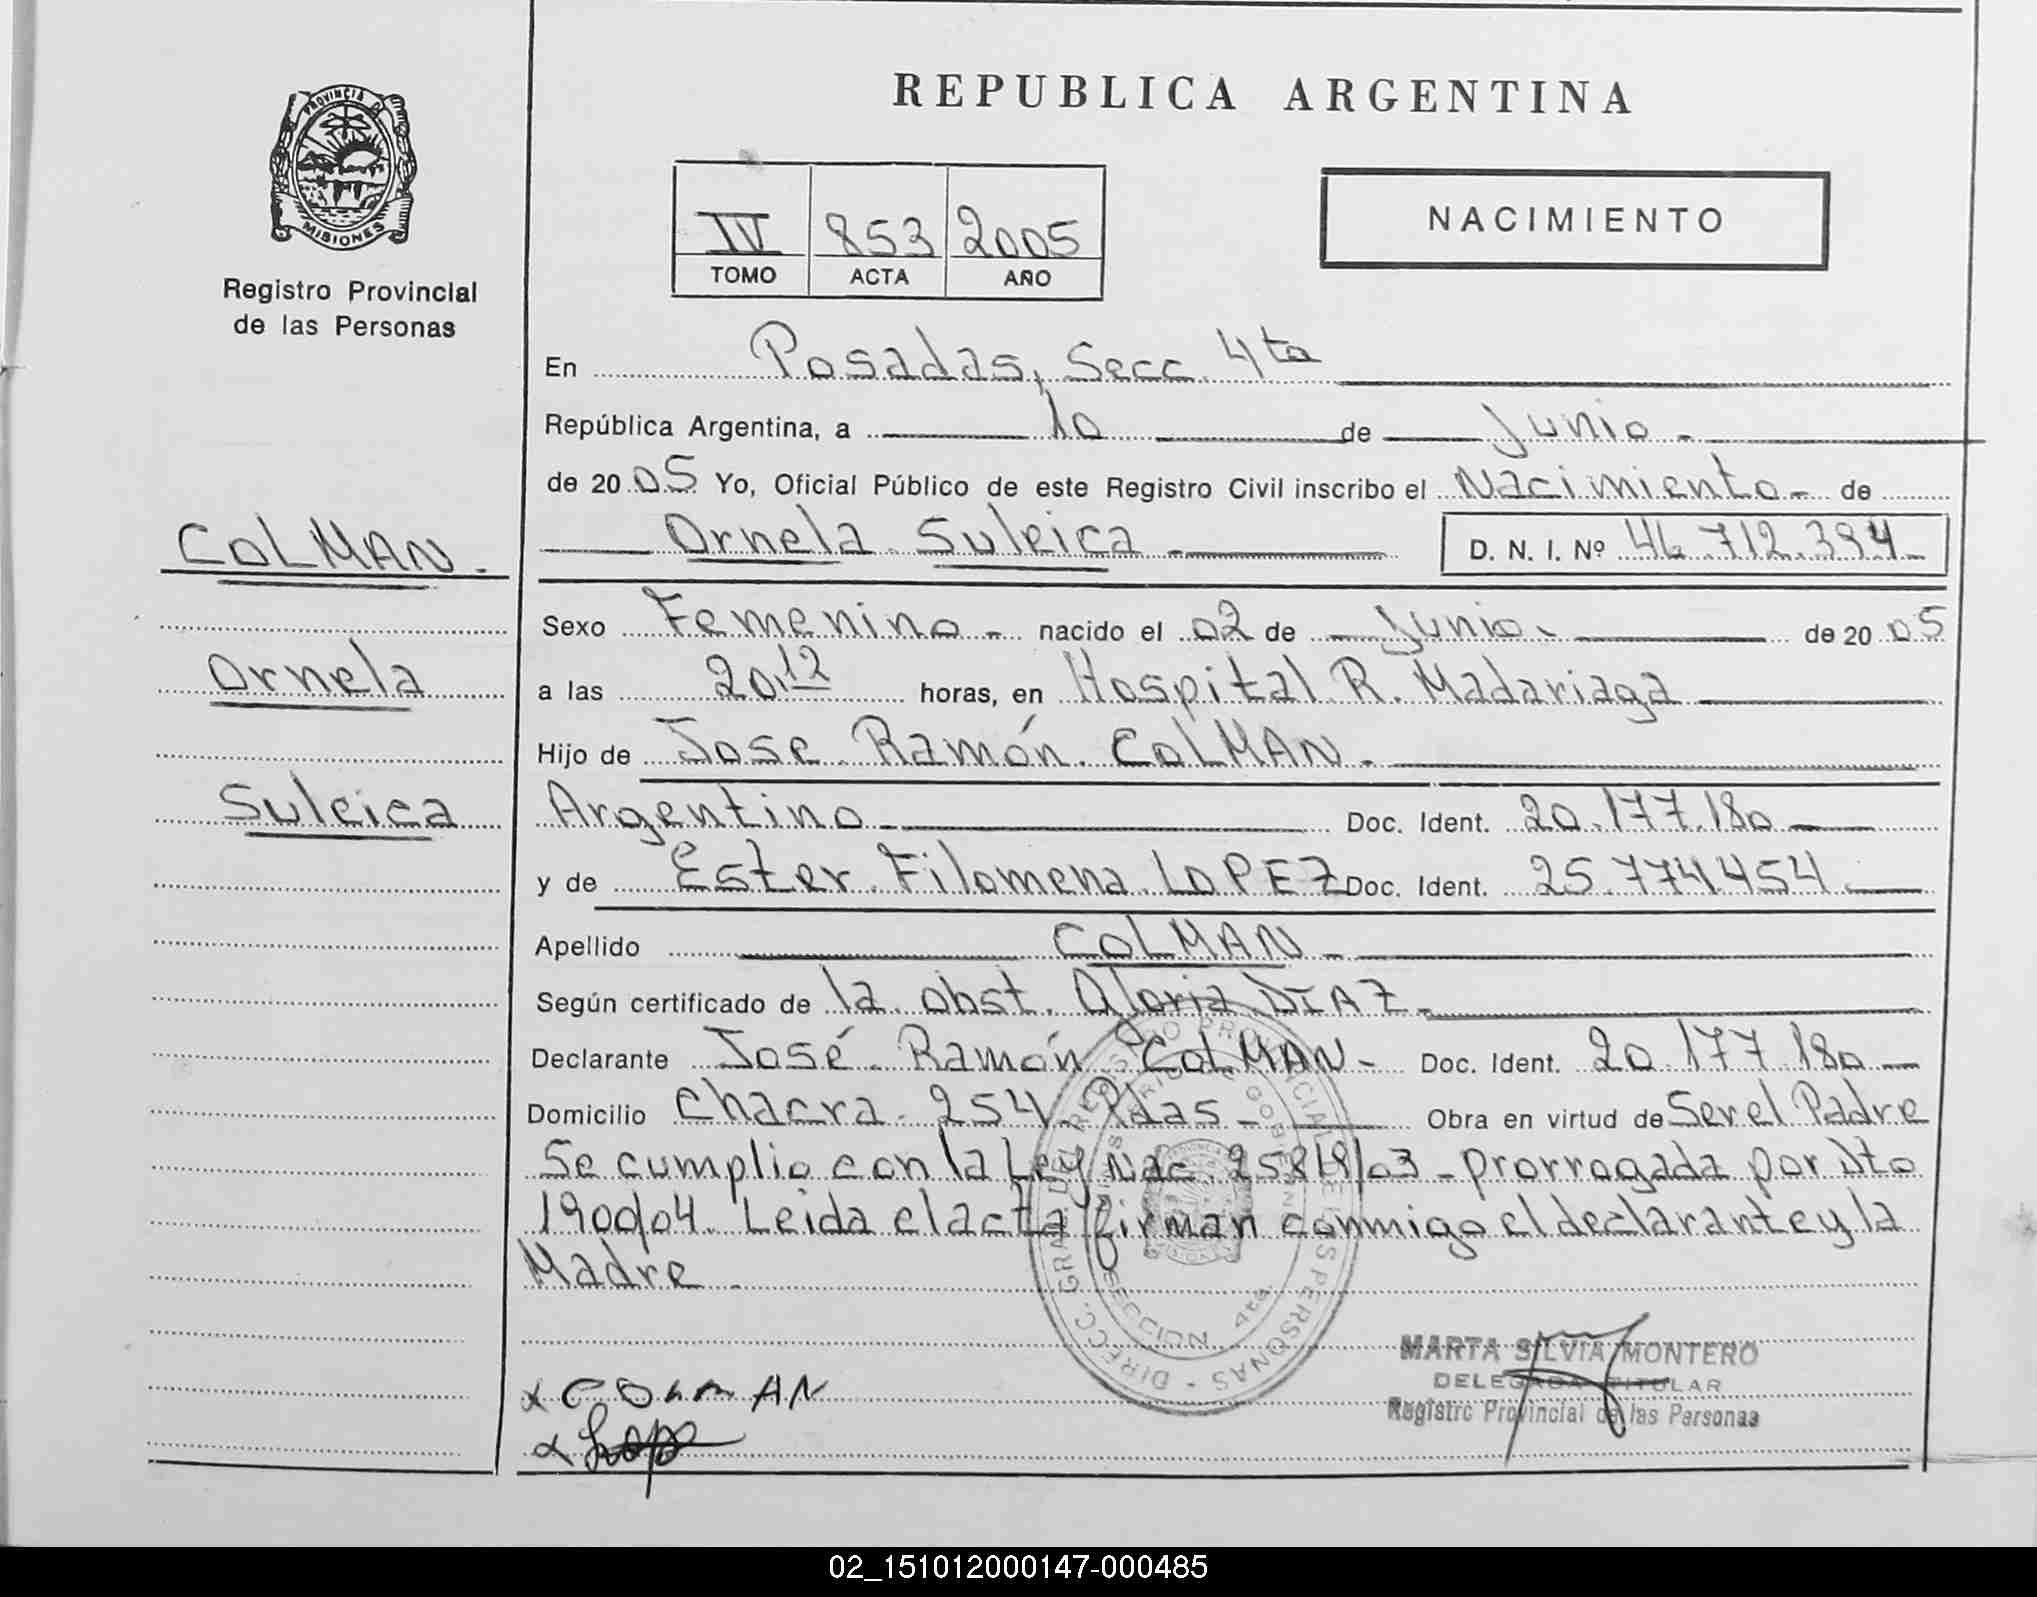 REPUBLICA ARGENTINA
PROVINCIA D
MISIONES
Registro Provincial
de las Personas
IV 853 2005
TOMO ACTA AÑO
NACIMIENTO
En Posadas, Secc. 4ta
República Argentina, a 10 de Junio -
de 2005 Yo, Oficial Público de este Registro Civil inscribo el Nacimiento - de
Ornela Suleica - D. N. I. Nº 46.712.394 -
COLMAN -
Ornela
Suleica
Sexo Femenino - nacido el 02 de Junio - de 2005
a las 20.12 horas, en Hospital R. Madariaga
Hijo de Jose Ramón COLMAN -
Argentino - Doc. Ident. 20.177.180 -
y de Ester Filomena LOPEZ Doc. Ident. 25.774.454 -
Apellido COLMAN -
Según certificado de la obst. Gloria DIAZ -
Declarante José Ramón COLMAN - Doc. Ident. 20.177.180 -
Domicilio Chacra 254 Pdas - Obra en virtud de Ser el Padre
Se cumplio con la Ley Nac. 25819/03 - prorrogada por Dto
1900/04. Leida el acta firman conmigo el declarante y la
Madre -
DIRECC. GRAL. DEL REGISTRO PROVINCIAL DE LAS PERSONAS
SECCION 4ta.
MARTA SILVIA MONTERO
DELEGADA TITULAR
Registro Provincial de las Personas
x COLMAN
x Lopez
02_151012000147-000485